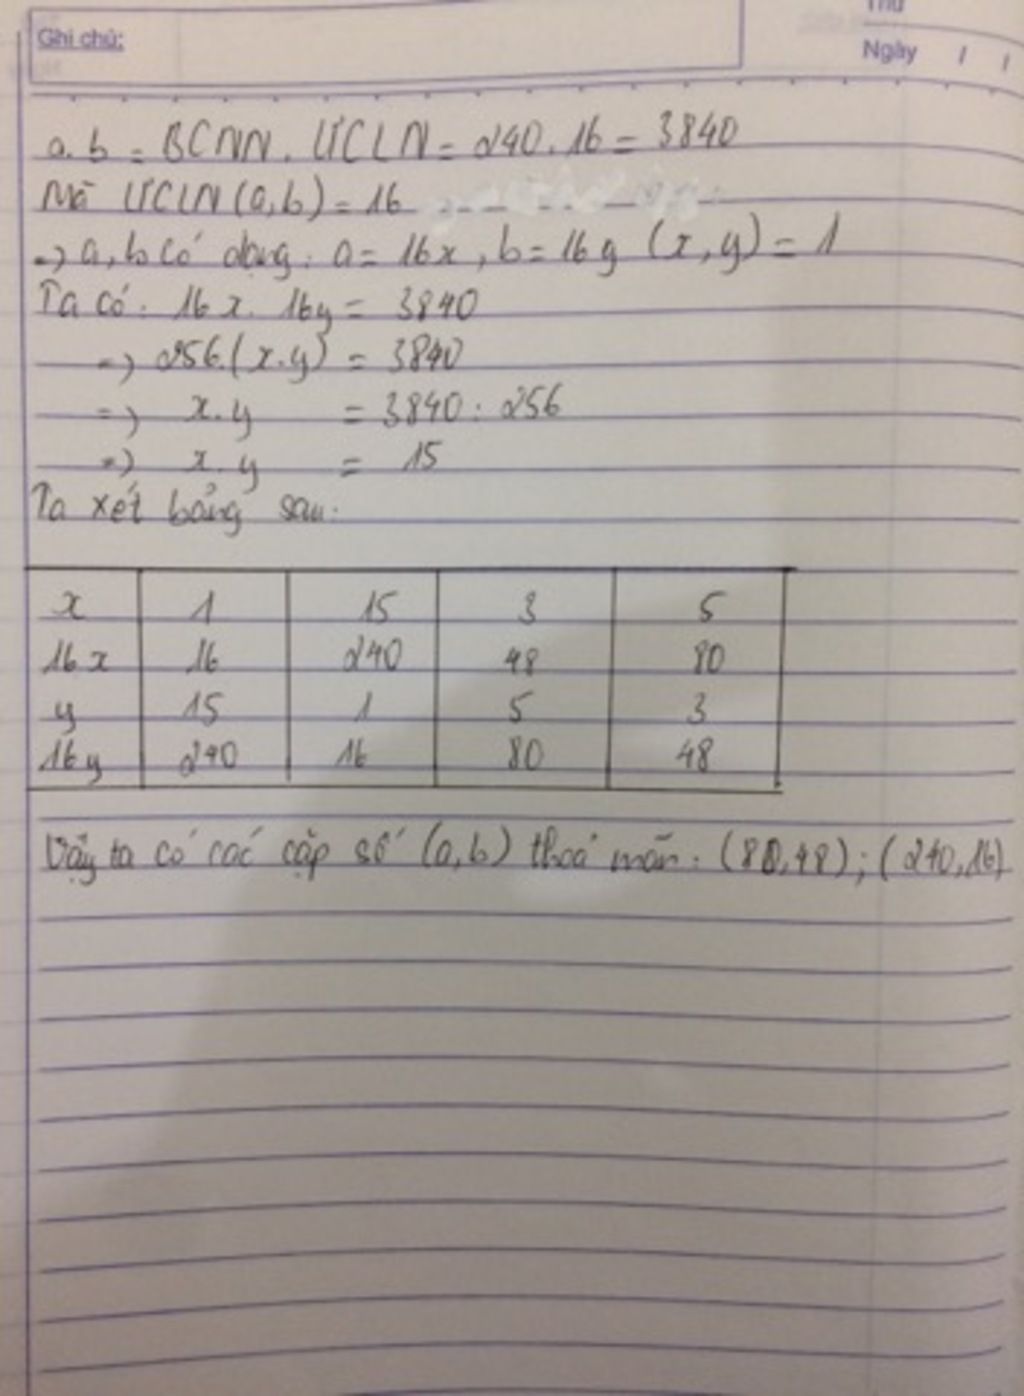 Thứ
Ghi chú:
Ngày / /
a.b = BCNN. ƯCLN = 240.16 = 3840
Mà ƯCLN (a,b) = 16
=> a, b có dạng: a = 16x, b = 16y (x,y) = 1
Ta có: 16x. 16y = 3840
=> 256.(x.y) = 3840
=> x.y = 3840 : 256
=> x.y = 15
Ta xét bảng sau:
x 1 15 3 5
16x 16 240 48 80
y 15 1 5 3
16y 240 16 80 48
Vậy ta có các cặp số (a,b) thoả mãn: (80,48); (240,16)